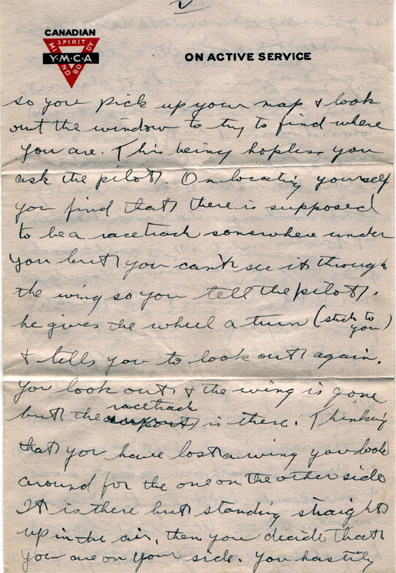 V
CANADIAN
SPIRIT
MIND
BODY
Y·M·C·A
ON ACTIVE SERVICE
so you pick up your map & look
out the window to try to find where
you are. This being hopless you
ask the pilot. On locating yourself
you find that there is supposed
to be a racetrack somewhere under
you but you can't see it through
the wing so you tell the pilot.
he gives the wheel a turn (stick to
you)
& tells you to look out again.
You look out & the wing is gone
but the racetrack is there. Thinking
that you have lost a wing you look
around for the one on the other side
It is there but standing straight
up in the air, then you decide that
you are on your side. You hastily